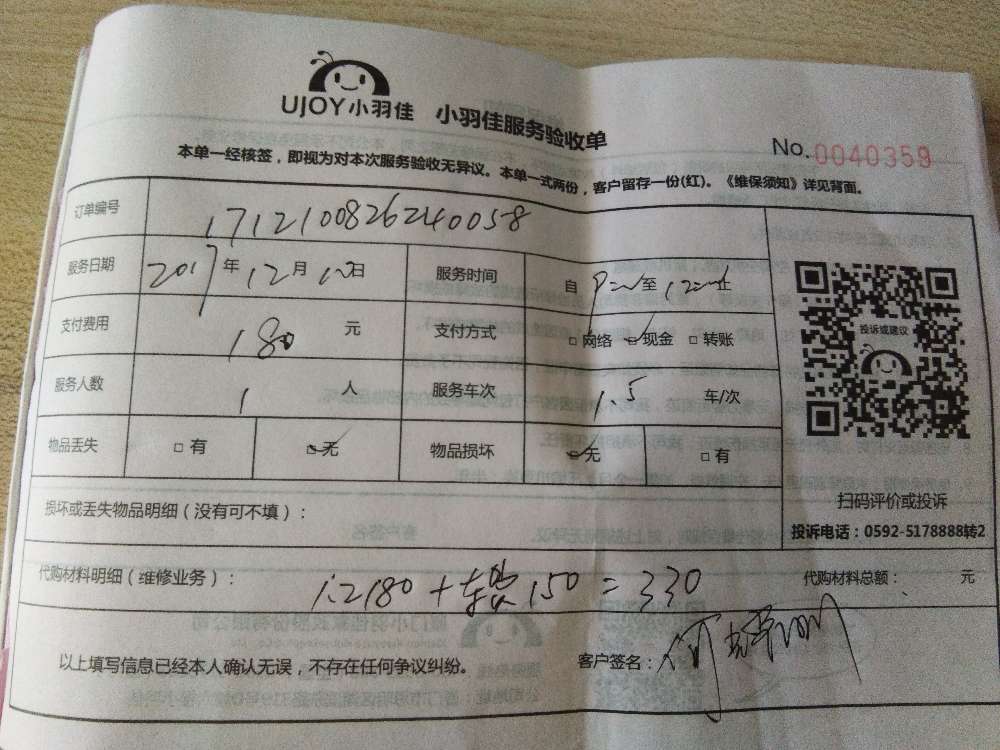 UJOY小羽佳 小羽佳服务验收单
No.0040359
本单一经核签，即视为对本次服务验收无异议。本单一式两份，客户留存一份(红)。《维保须知》详见背面。
订单编号 1712100826240058
服务日期 2017年12月10日 服务时间 自 至 止
支付费用 180 元 支付方式 □网络 □现金 □转账
服务人数 1 人 服务车次 1.5 车/次
物品丢失 □有 □无 物品损坏 □无 □有
投诉或建议
扫码评价或投诉
投诉电话：0592-5178888转2
损坏或丢失物品明细（没有可不填）：
代购材料明细（维修业务）： 人工180+车费150=330 代购材料总额： 元
以上填写信息已经本人确认无误，不存在任何争议纠纷。 客户签名：